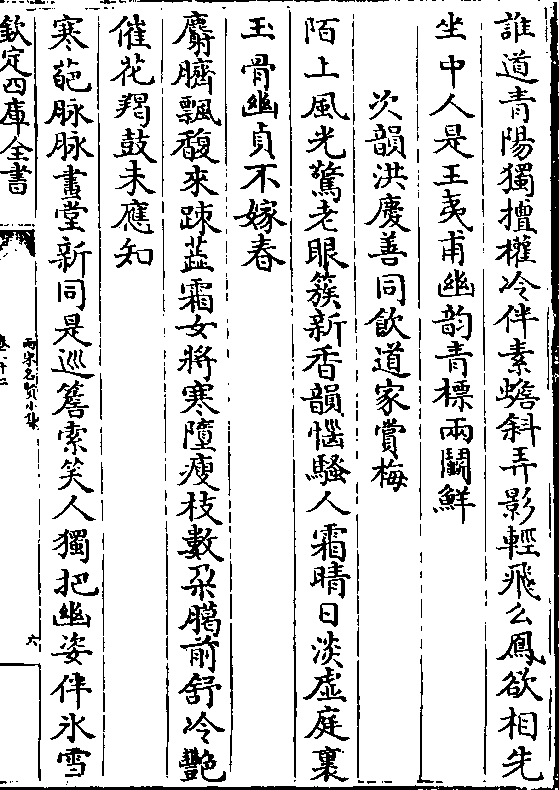 誰道青陽獨擅權冷伴素蟾斜弄影輕飛么鳳欲相先
坐中人是王夷甫幽韵青標兩鬭鮮
次韻洪慶善同飲道家賞梅
陌上風光驚老眼簇新香韻惱騷人霜晴日淡虛庭裏
玉骨幽貞不嫁春
麝臍飄馥來踈蕋霜女將寒墮瘦枝數朶臈前舒冷艶
催花羯鼓未應知
寒葩脉脉畫堂新同是巡簷索笑人獨把幽姿伴氷雪
欽定四庫全書
兩宋名賢小集
六